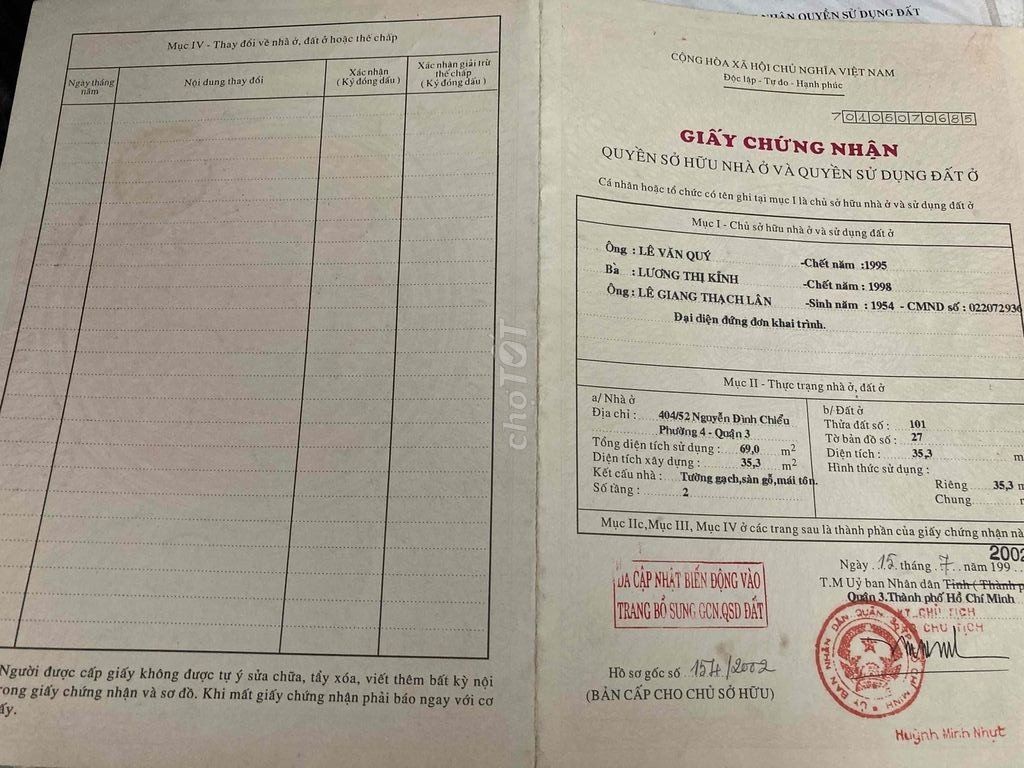 Mục IV - Thay đổi về nhà ở, đất ở hoặc thế chấp
Ngày tháng năm
Nội dung thay đổi
Xác nhận
( Ký đóng dấu )
Xác nhận giải trừ
thế chấp
( Ký đóng dấu )
Người được cấp giấy không được tự ý sửa chữa, tẩy xóa, viết thêm bất kỳ nội
rong giấy chứng nhận và sơ đồ. Khi mất giấy chứng nhận phải báo ngay với cơ
ấy.
choTỐT
NHẬN QUYỀN SỬ DỤNG ĐẤT
CỘNG HÒA XÃ HỘI CHỦ NGHĨA VIỆT NAM
Độc lập - Tự do - Hạnh phúc
70105070685
GIẤY CHỨNG NHẬN
QUYỀN SỞ HỮU NHÀ Ở VÀ QUYỀN SỬ DỤNG ĐẤT Ở
Cá nhân hoặc tổ chức có tên ghi tại mục I là chủ sở hữu nhà ở và sử dụng đất ở
Mục I - Chủ sở hữu nhà ở và sử dụng đất ở
Ông : LÊ VĂN QUÝ -Chết năm :1995
Bà : LƯƠNG THỊ KÍNH -Chết năm : 1998
Ông : LÊ GIANG THẠCH LÂN -Sinh năm : 1954 - CMND số : 022072936
Đại diện đứng đơn khai trình.
Mục II - Thực trạng nhà ở, đất ở
a/ Nhà ở
Địa chỉ : 404/52 Nguyễn Đình Chiểu
Phường 4 - Quận 3
Tổng diện tích sử dụng : 69,0 m2
Diện tích xây dựng : 35,3 m2
Kết cấu nhà : Tường gạch,sàn gỗ,mái tôn.
Số tầng : 2
b/ Đất ở
Thửa đất số : 101
Tờ bản đồ số : 27
Diện tích : 35,3 m
Hình thức sử dụng :
Riêng 35,3 m
Chung m
Mục IIc,Mục III, Mục IV ở các trang sau là thành phần của giấy chứng nhận nà
2002
Ngày 15 tháng 7 năm 199
T.M Uỷ ban Nhân dân Tỉnh ( Thành p
Quận 3.Thành phố Hồ Chí Minh
KT. CHỦ TỊCH
PHÓ CHỦ TỊCH
ĐÃ CẬP NHẬT BIẾN ĐỘNG VÀO
TRANG BỔ SUNG GCN.QSD ĐẤT
Hồ sơ gốc số 154/2002
(BẢN CẤP CHO CHỦ SỞ HỮU)
ỦY BAN NHÂN DÂN QUẬN 3
Huỳnh Minh Nhựt